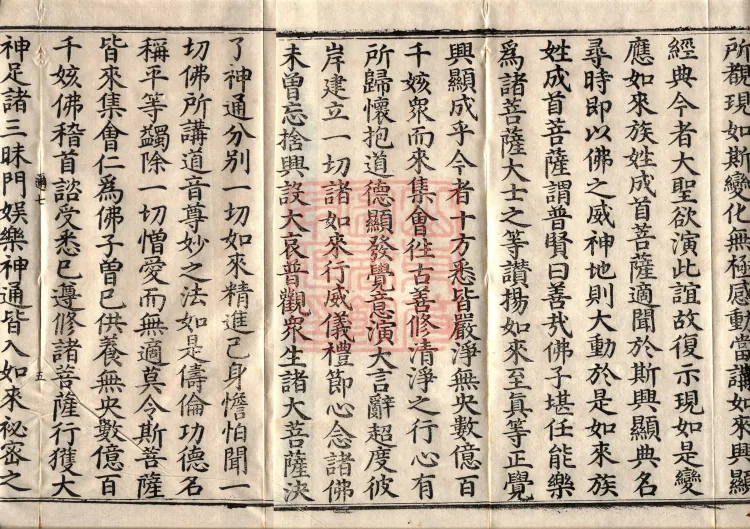 所觀現如斯變化無極感動當講如來興顯
經典今者大聖欲演此誼故復示現如是變
應如來族姓成首菩薩適聞於斯興顯典名
尋時即以佛之威神地則大動於是如來族
姓成首菩薩謂普賢曰善哉佛子堪任能樂
爲諸菩薩大士之等讚揚如來至真等正覺
興顯成乎今者十方悉皆嚴淨無央數億百
千姟衆而來集會往古善修清淨之行心有
所歸懷抱道德顯發覺意演大言辭超度彼
岸建立一切諸如來行威儀禮節心念諸佛
未曾忘捨興設大哀普觀衆生諸大菩薩決
了神通分別一切如來精進己身憺怕聞一
切佛所講道音尊妙之法如是儔倫功德名
稱平等蠲除一切憎愛而無適莫令斯菩薩
皆來集會仁爲佛子曾已供養無央數億百
千姟佛稽首諮受悉已遵修諸菩薩行獲大
神足諸三昧門娛樂神通皆入如來祕密之
七
五